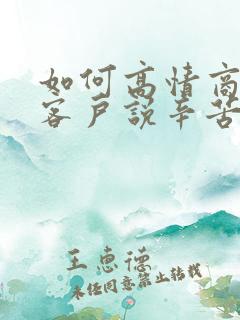 如何高情商
客户说辛苦
王惠德
未经同意禁止转载